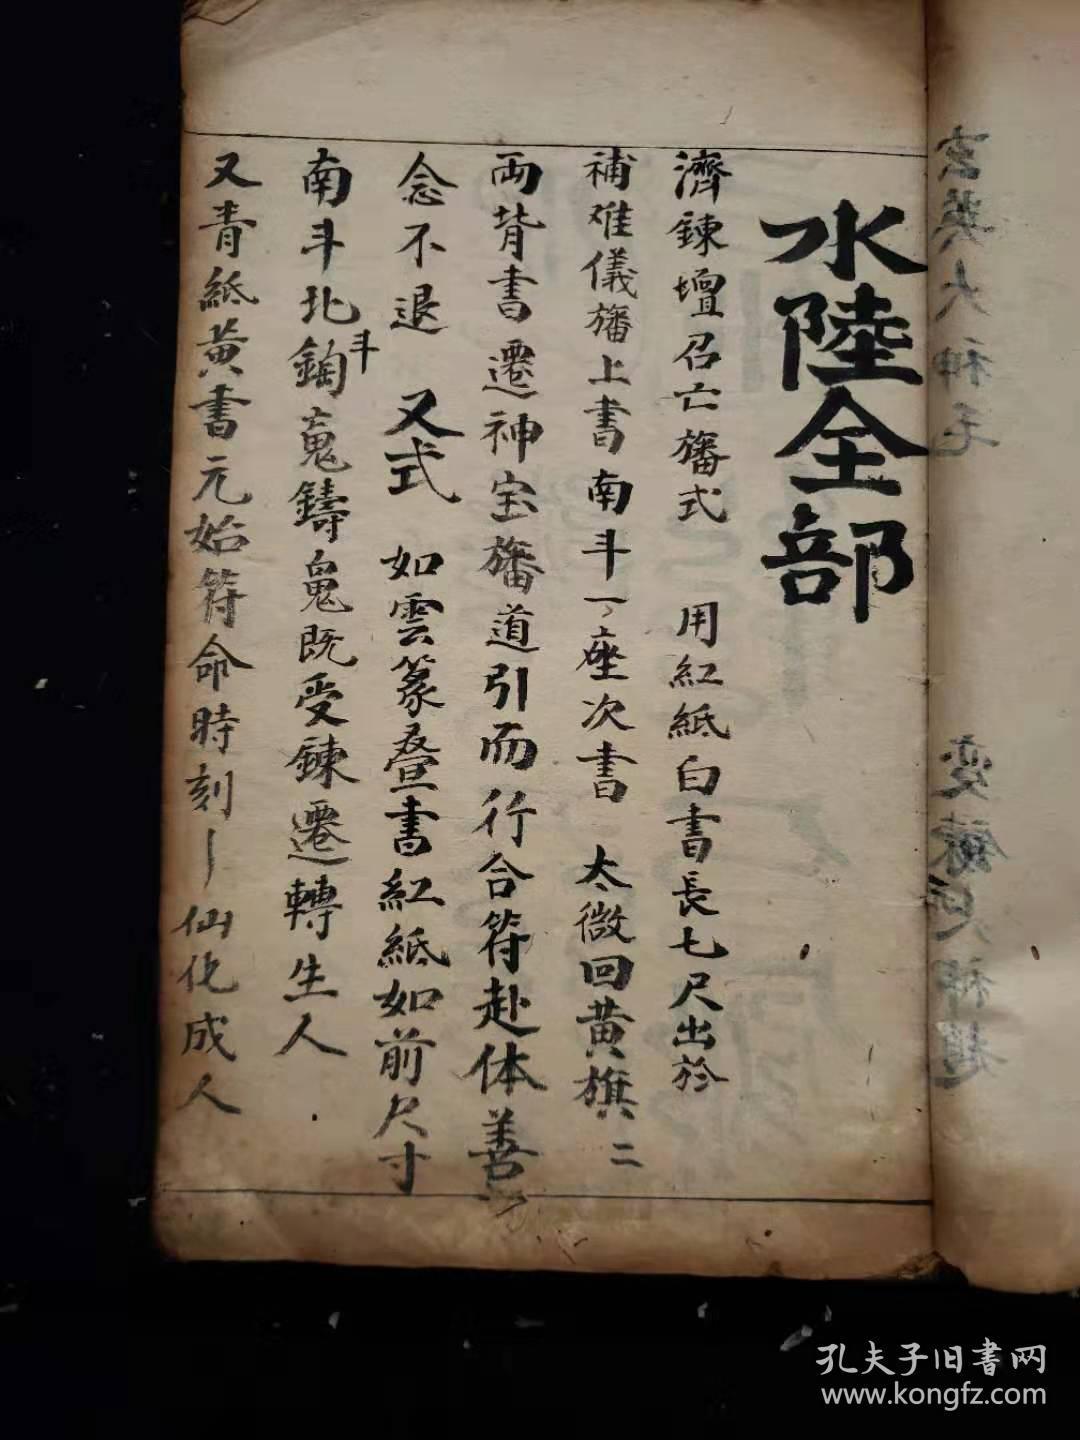 水陸全部
濟鍊壇召亡旛式　用紅紙白書長七尺出於
補難儀旛上書南斗一座次書　太微回黄旗二
両背書遷神宝旛道引而行合符赴体善
念不退　又式　如雲篆叠書紅紙如前尺寸
南斗北斗鑄䰟既受鍊遷轉生人
又青紙黄書元始符命時刻丨仙化成人
孔夫子旧書网
www.kongfz.com